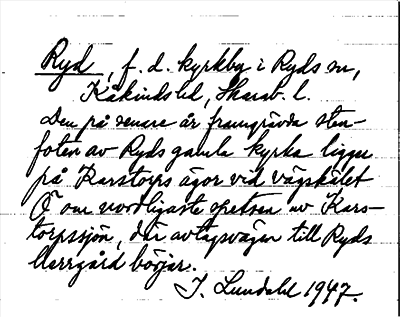 Ryd, f. d. kyrkby i Ryds sn,
Kåkinds hd, Skarab. l.
Den på senare år framgrävda sten-
foten av Ryds gamla kyrka ligger
på Karstorps ägor vid vägskälet
Ö om nordligaste spetsen av Kars-
torpssjön, där avtagsvägen till Ryds
Herrgård börjar.
I. Lundahl 1947.